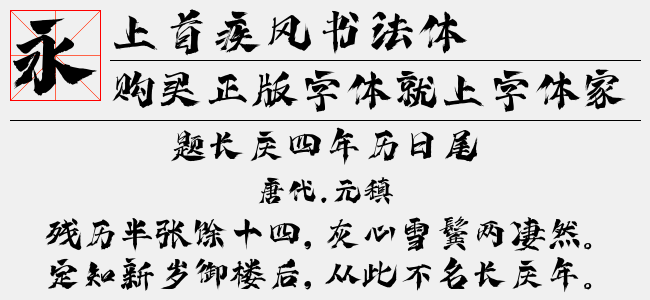 永
上首疾风书法体
购买正版字体就上字体家
题长庆四年历日尾
唐代.元稹
残历半张馀十四，灰心雪鬓两凄然。
定知新岁御楼后，从此不名长庆年。